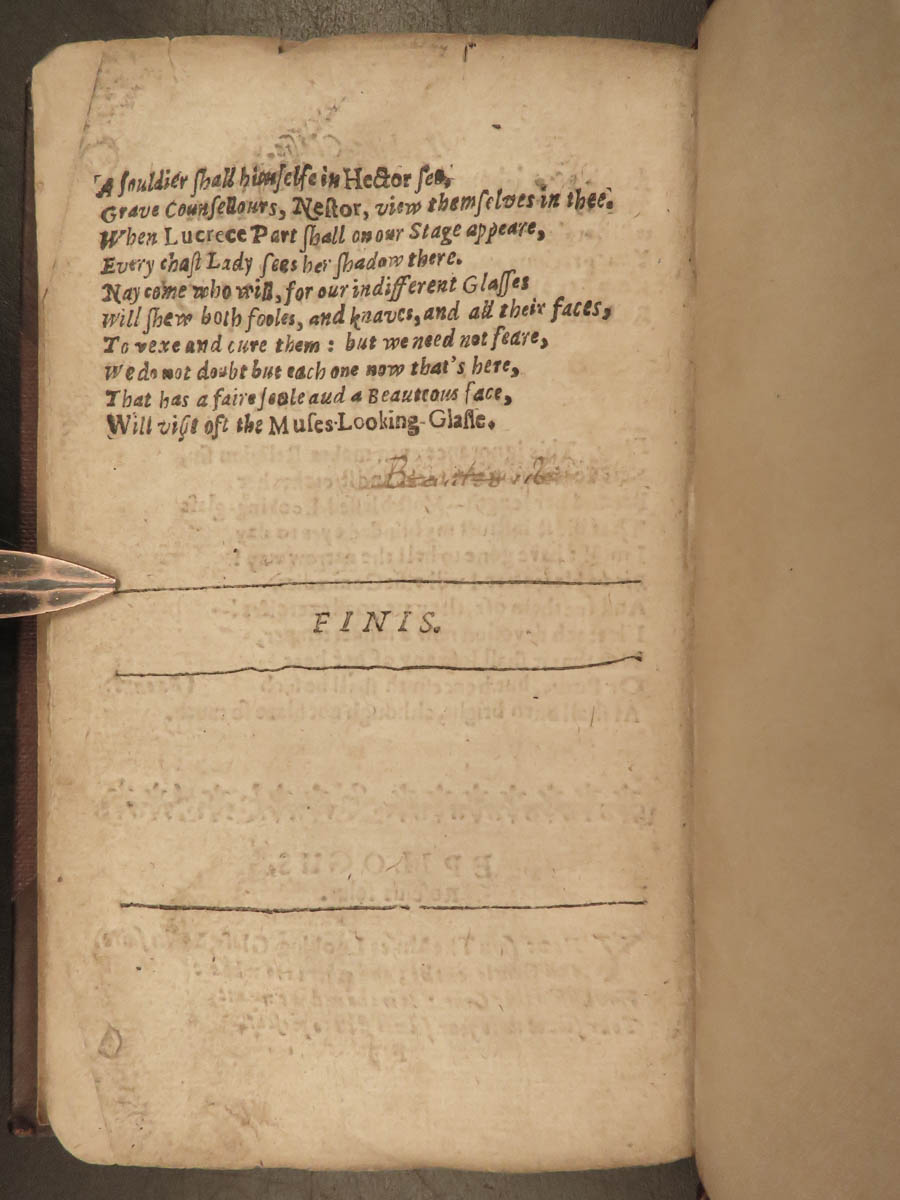 A ſouldier ſhall himſelfe in Hector ſee,
Grave Counſellours, Neſtor, view themſelves in thee.
When Lucrece Part ſhall on our Stage appeare,
Every chaſt Lady ſees her ſhadow there.
Nay come who will, for our indifferent Glaſſes
Will ſhew both fooles, and knaves, and all their faces,
To vexe and cure them: but we need not feare,
We do not doubt but each one now that's here,
That has a faire ſoule aud a Beauteous face,
Will viſit oft the Muſes-Looking-Glaſſe.
FINIS.